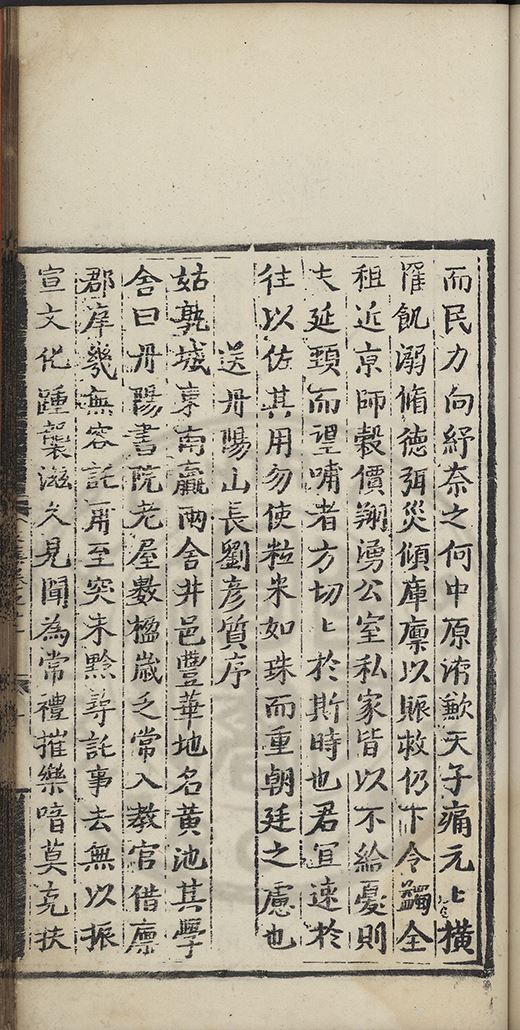 而民力向紓奈之何中原洊歉天子痛元〻橫
罹飢溺脩德弭災傾庫廩以賑救仍下令蠲全
租近京師穀價翔湧公室私家皆以不給憂則
夫延頸而望哺者方切〻於斯時也君宜速於
往以佐其用勿使粒米如珠而重朝廷之慮也
送丹陽山長劉彥質序
姑孰城東南贏兩舍井邑豐華地名黃池其學
舍曰丹陽書院老屋數楹歲乏常入教官借廩
郡庠幾無容託甫至突未黔尋託事去無以振
宣文化踵襲滋久見聞為常禮摧樂喑莫克扶